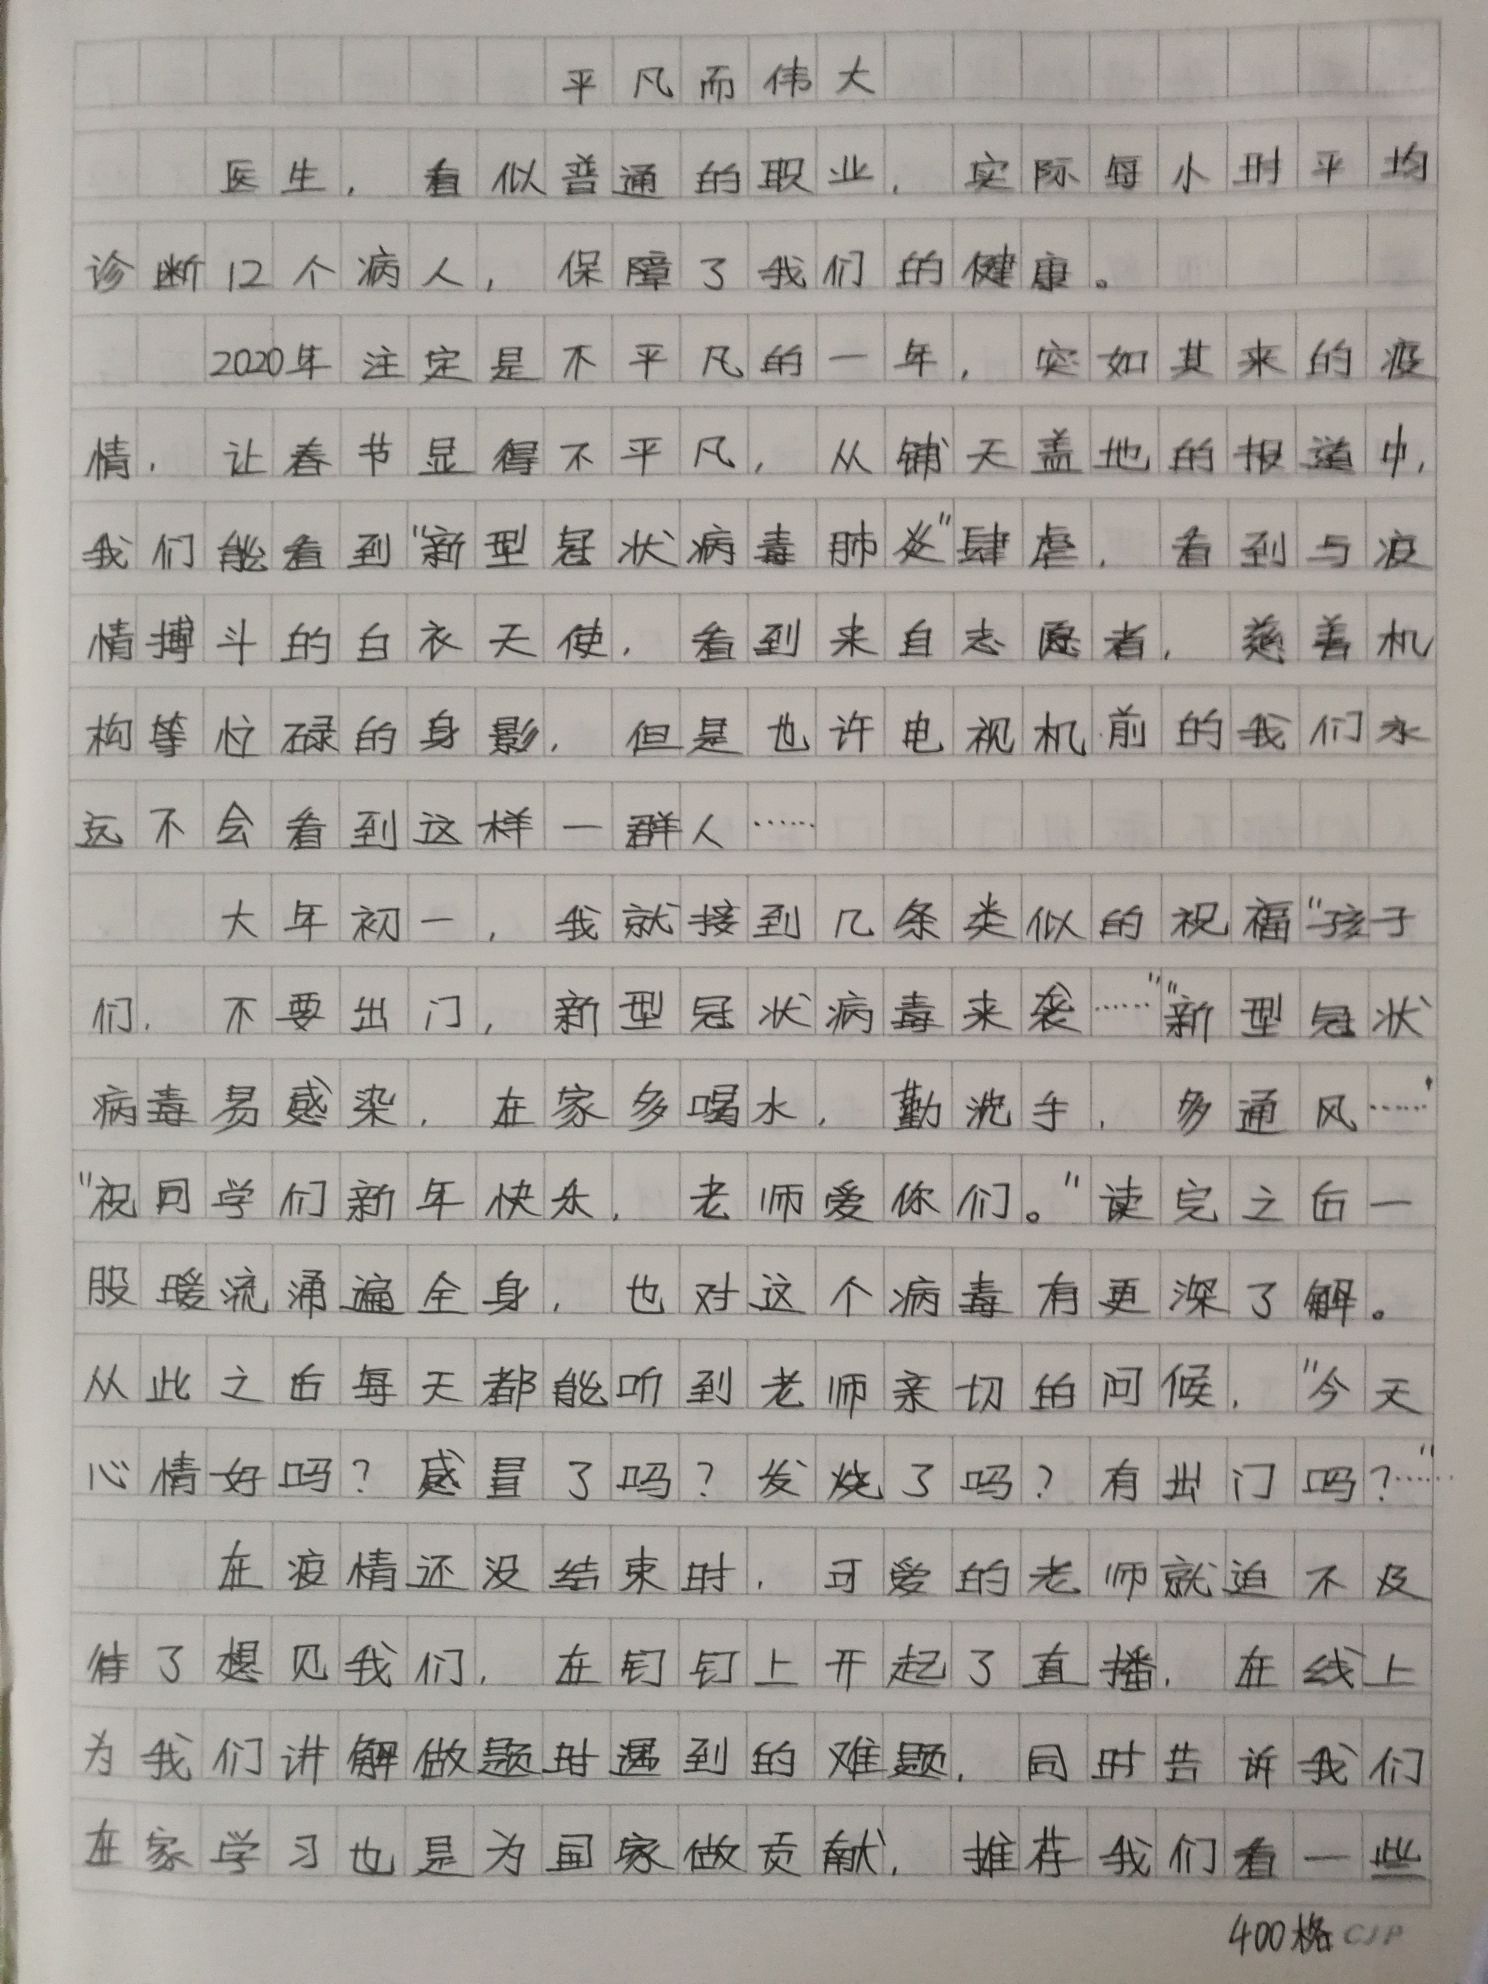 平凡而伟大
医生，看似普通的职业，实际每小时平均
诊断12个病人，保障了我们的健康。
2020年注定是不平凡的一年，突如其来的疫
情，让春节显得不平凡，从铺天盖地的报道中，
我们能看到“新型冠状病毒肺炎”肆虐，看到与疫
情搏斗的白衣天使，看到来自志愿者，慈善机
构等忙碌的身影，但是也许电视机前的我们永
远不会看到这样一群人……
大年初一，我就接到几条类似的祝福“孩子
们，不要出门，新型冠状病毒来袭……”“新型冠状
病毒易感染，在家多喝水，勤洗手，多通风……”
“祝同学们新年快乐，老师爱你们。”读完之后一
股暖流涌遍全身，也对这个病毒有更深了解。
从此之后每天都能听到老师亲切的问候，“今天
心情好吗？感冒了吗？发烧了吗？有出门吗？……”
在疫情还没结束时，可爱的老师就迫不及
待了想见我们，在钉钉上开起了直播，在线上
为我们讲解做题时遇到的难题，同时告诉我们
在家学习也是为国家做贡献，推荐我们看一些
400格 CJP